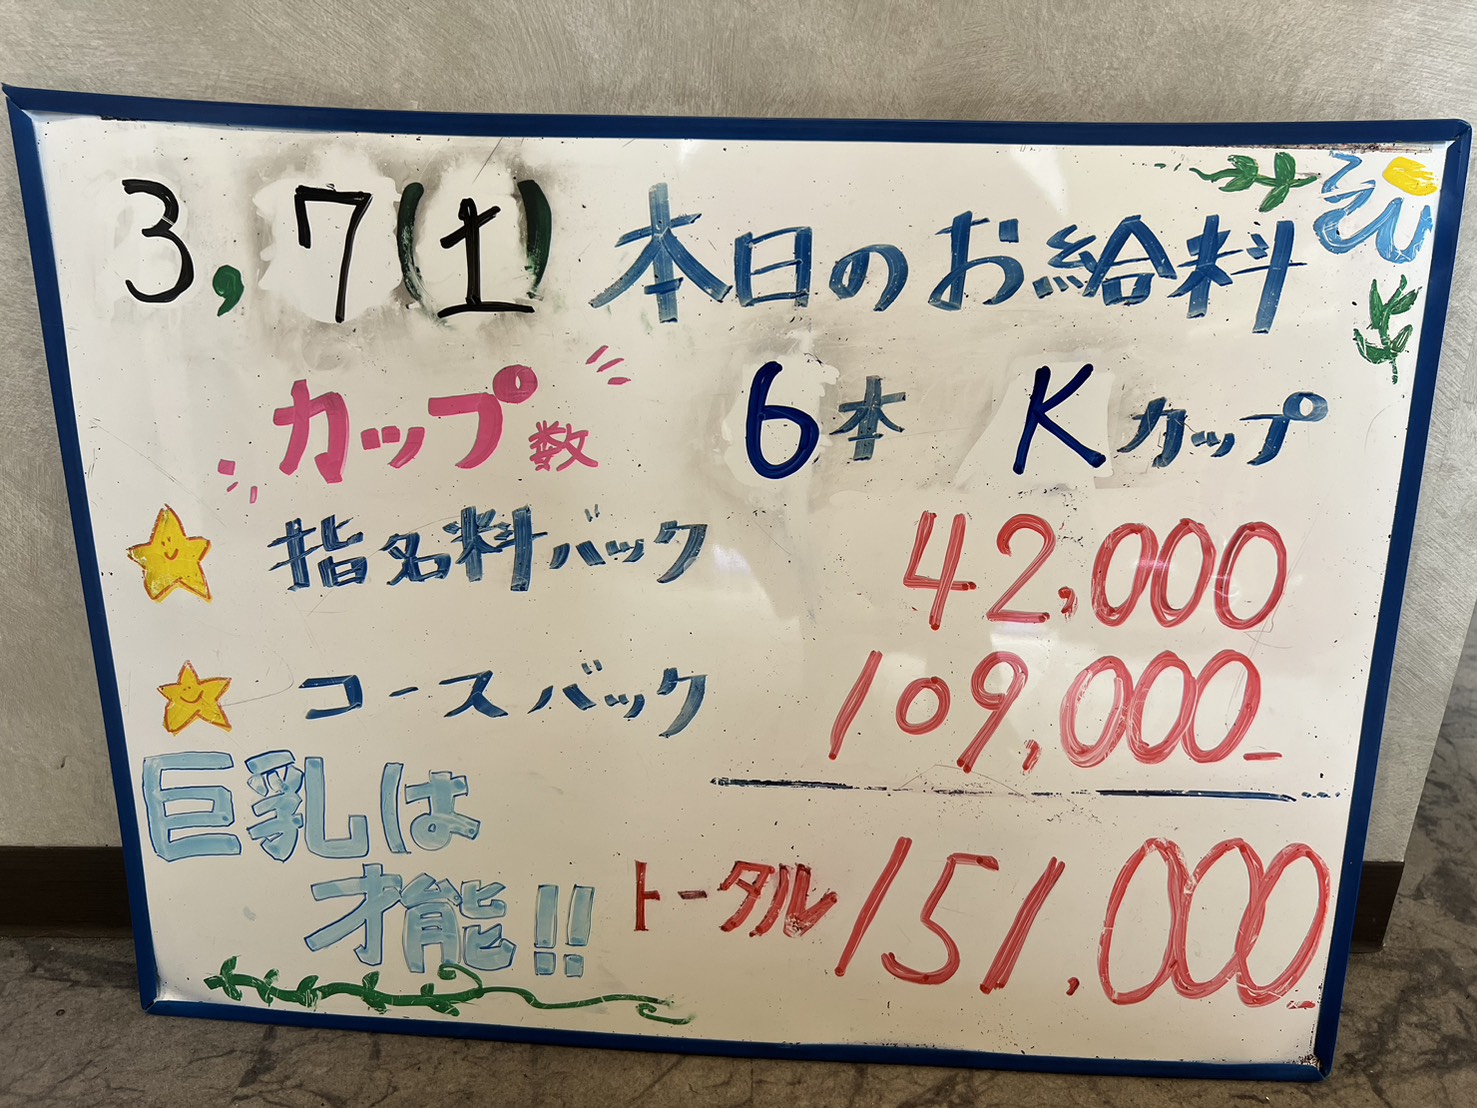 3,7(土) 本日のお給料
カップ数 6本 Kカップ
指名料バック 42,000
コースバック 109,000-
巨乳は
才能!!
トータル 151,000-